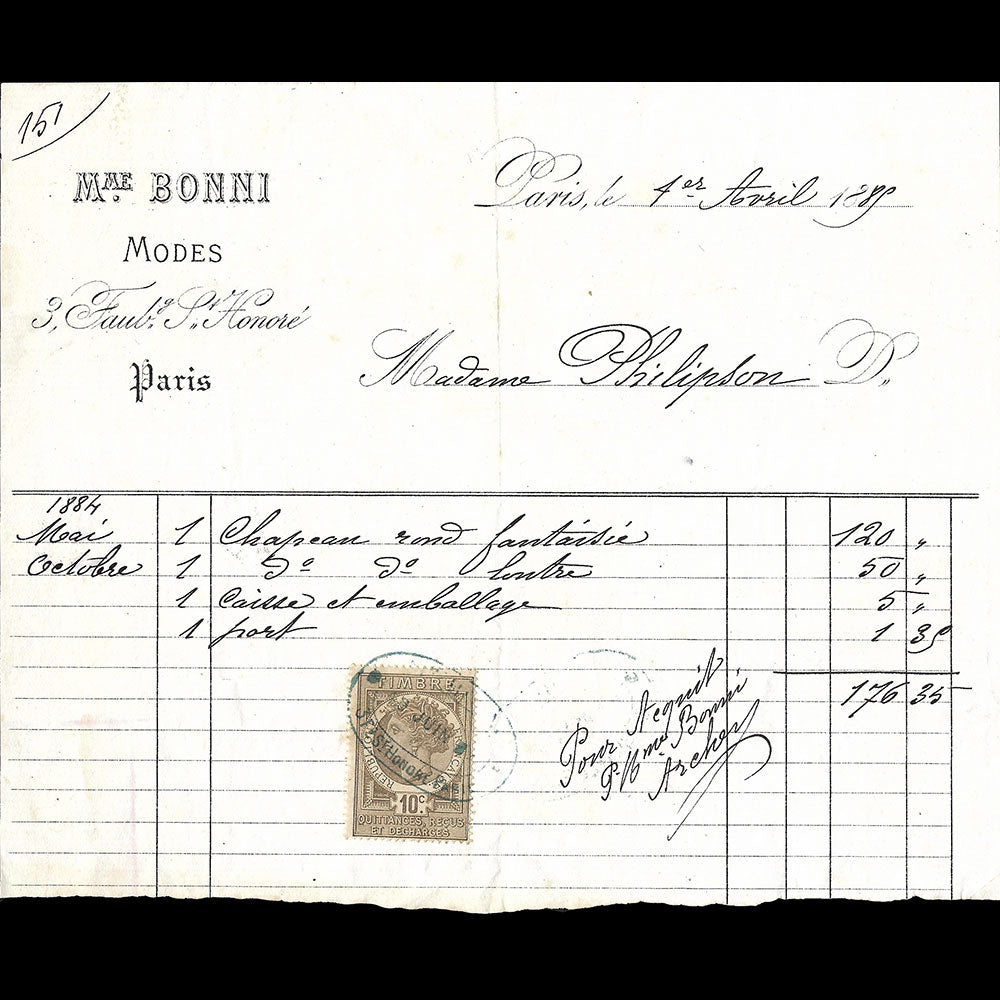 151
MME. BONNI
MODES
3, Faubg. St. Honoré
Paris
Paris, le 1er Avril 1885
Madame Philipson D.
1884
Mai 1 Chapeau rond fantaisie 120 "
Octobre 1 do do loutre 50 "
1 Caisse et emballage 5 "
1 port 1 35
176 35
Pour Acquit
Pr Mme Bonni
Archer
TIMBRE
JUIN
RÉPUBLIQUE FRANÇAISE
ST HONORÉ
10c.
QUITTANCES, REÇUS
ET DÉCHARGES